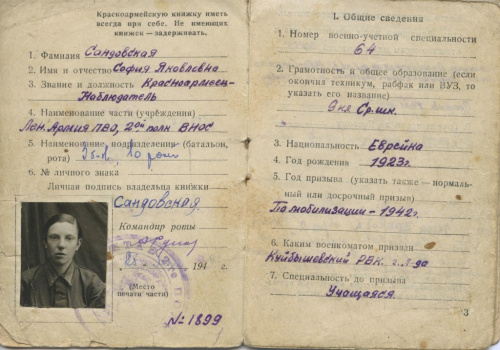 Красноармейскую книжку иметь
всегда при себе. Не имеющих
книжек — задерживать.
1. Фамилия Сандовская
2. Имя и отчество София Яковлевна
3. Звание и должность Красноармеец-
Наблюдатель
4. Наименование части (учреждения)
Лен. Армия ПВО, 2ой полк ВНОС
5. Наименование подразделения (батальон,
рота)
6. № личного знака
Личная подпись владельца книжки
Сандовская.
Командир роты
194 г.
(Место
печати части)
№ 1899
I. Общие сведения
1. Номер военно-учетной специальности
64
2. Грамотность и общее образование (если
окончил техникум, рабфак или ВУЗ, то
указать его название)
9 кл Ср. шк.
3. Национальность Еврейка
4. Год рождения 1923г.
5. Год призыва (указать также — нормаль-
ный или досрочный призыв)
По мобилизации - 1942г.
6. Каким военкоматом призван
Куйбышевский РВК. г. Л-да
7. Специальность до призыва
Учащаяся.
3